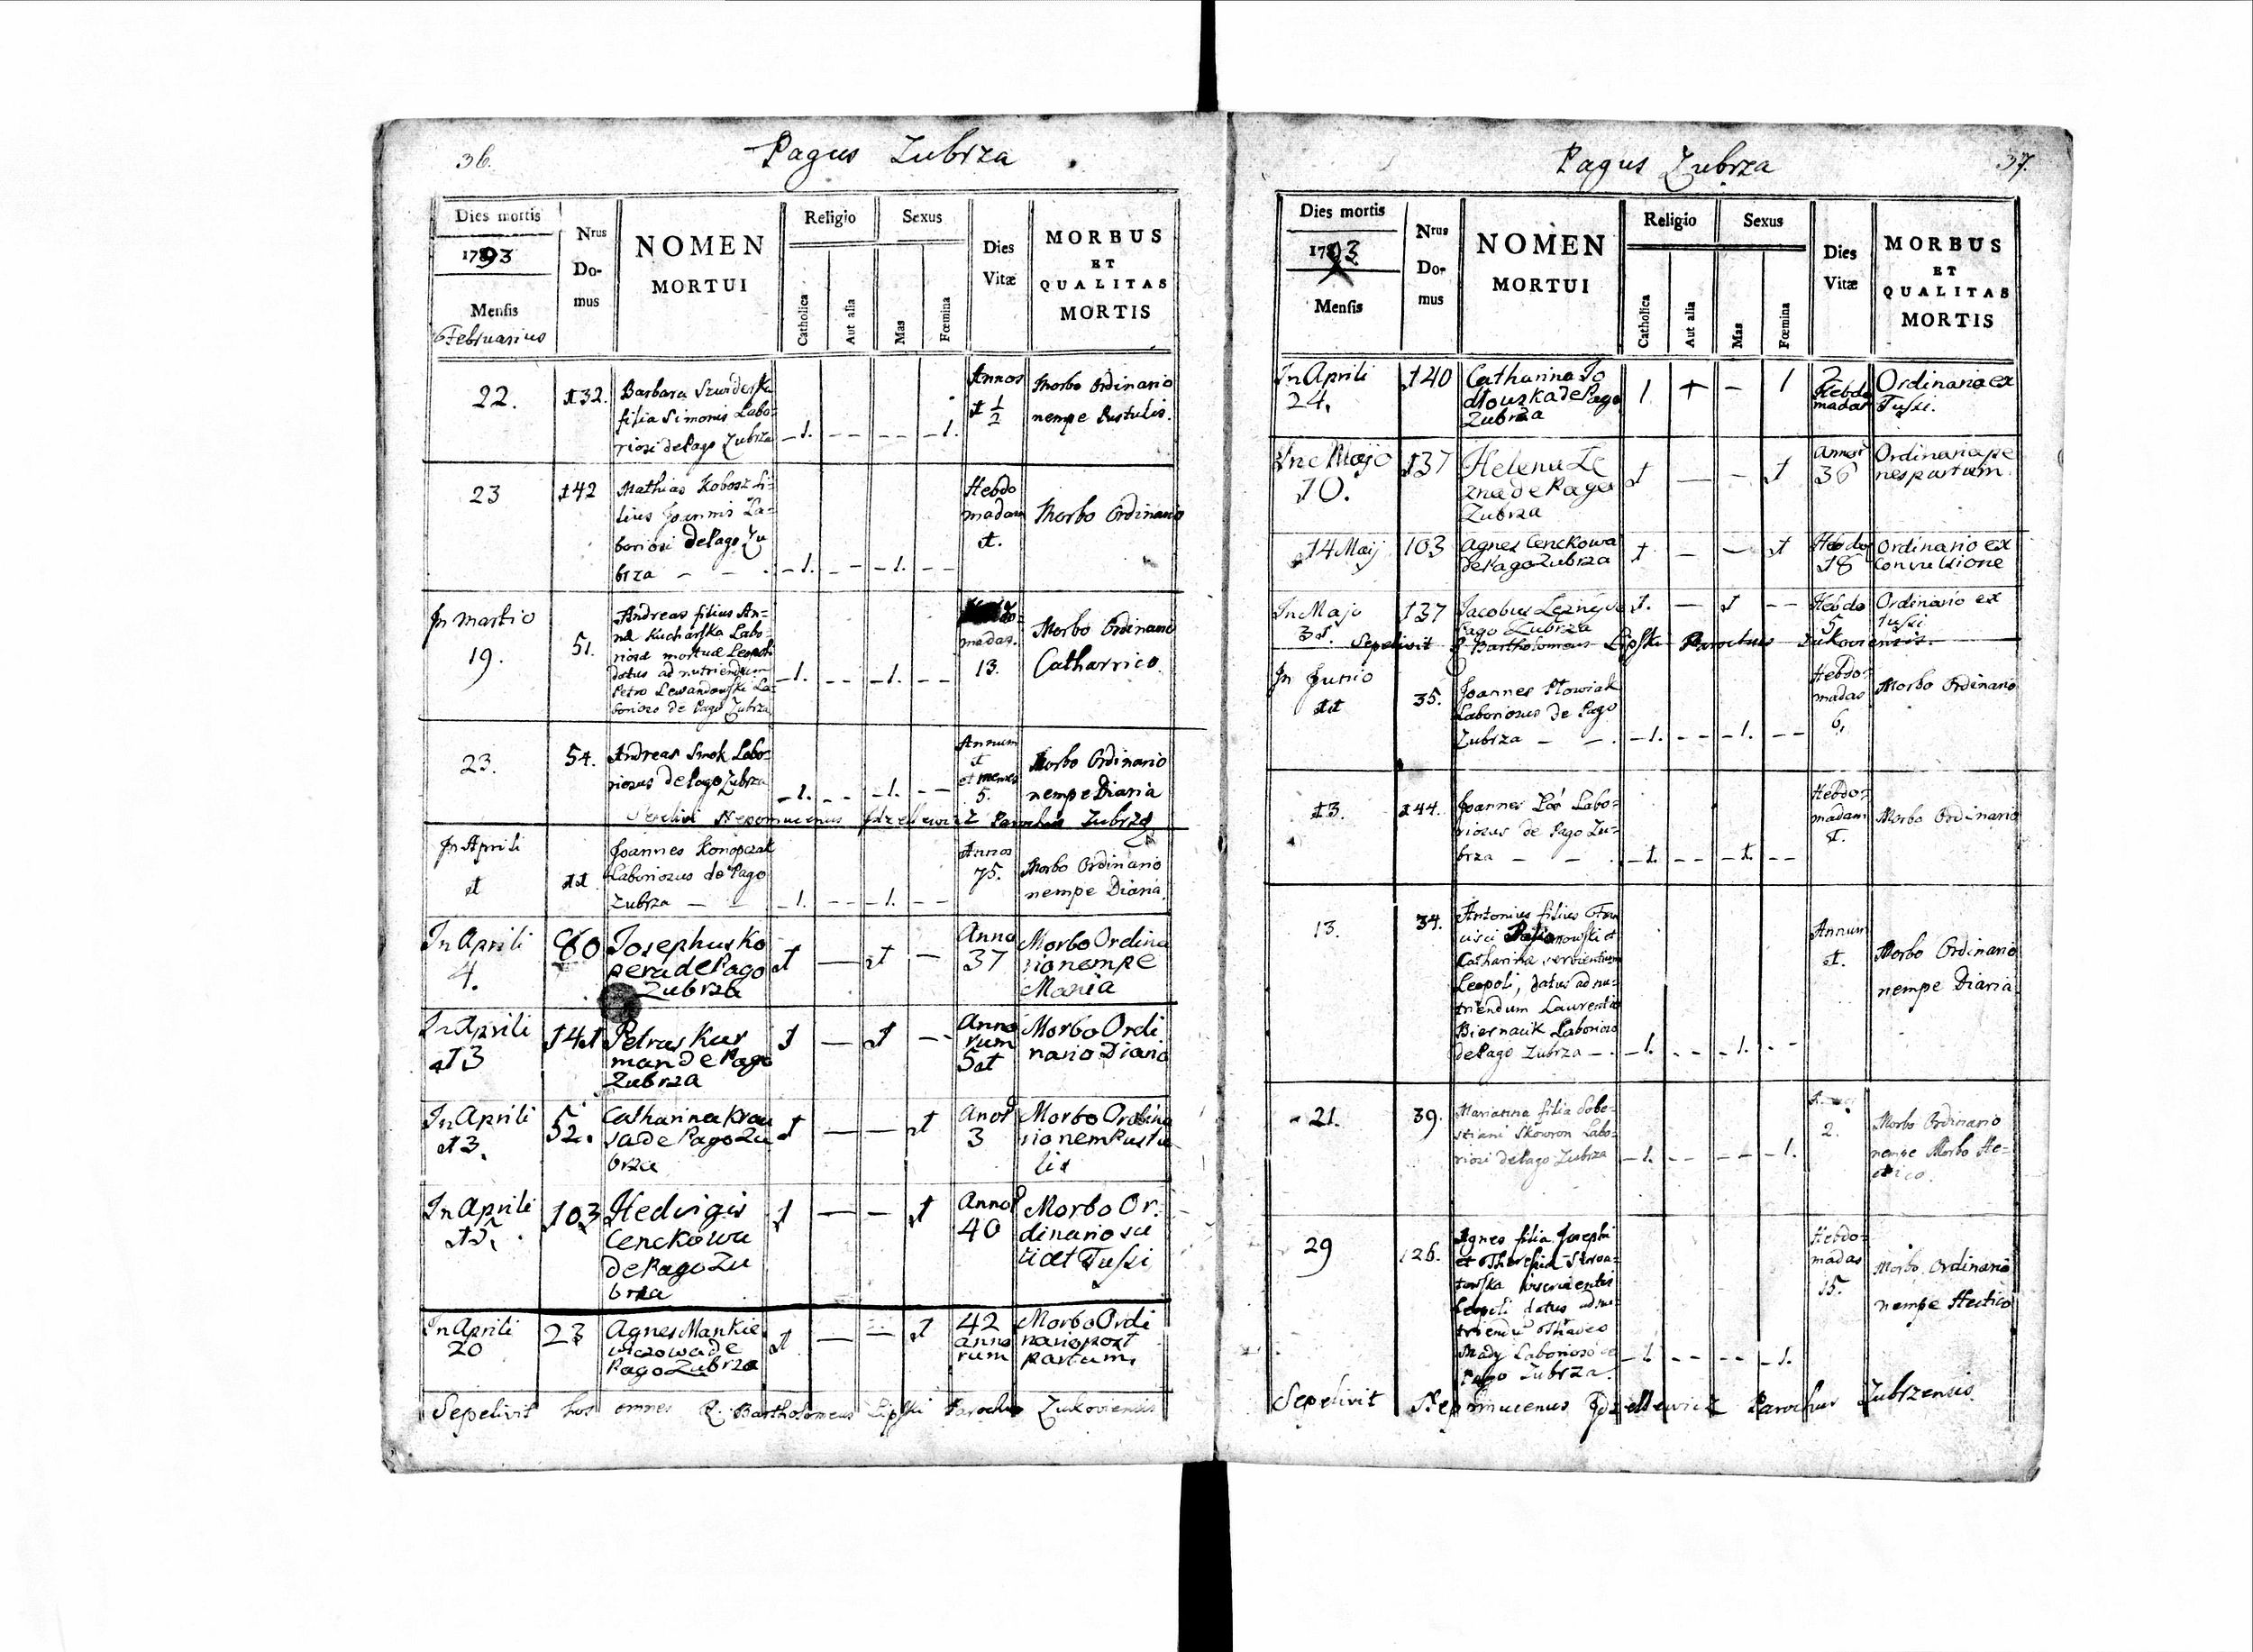 36.
Pagus Zubrza
Dies mortis
1793
Mensis
Februarius
Nrus
Do-
mus
NOMEN
MORTUI
Religio
Catholica
Aut alia
Sexus
Mas
Fœmina
Dies
Vitæ
MORBUS
ET
QUALITAS
MORTIS
22.
132.
Barbara
filia Simonis Labo-
riosi de Pago Zubrza
-1. -- -- -1.
Annos
1 1/2
Morbo Ordinario
nempe Pustulis.
23
142
Mathias Kobosz fi-
lius Joannis La-
boriosi de Pago Zu
brza - -
-1. -- -1. --
Hebdo
madam
1.
Morbo Ordinario
In Martio
19.
51.
Andreas filius An-
næ Kucharska Labo-
riosæ mortuæ Leopoli
datus ad nutriendum
Petro Lewandowski La-
borioso de Pago Zubrza
-1. -- -1. --
madas.
13.
Morbo Ordinario
Catharrico
23.
54.
Andreas Smok Labo-
riosus de Pago Zubrza
-1. -- -1. --
Annum
1
et menses
5.
Morbo Ordinario
nempe Diaria
Nepomucenus Parochus
In Aprili
1
11
Joannes Konopczak
Laboriosus de Pago
Zubrza - -
-1. -- -1. --
Annos
75.
Morbo Ordinario
nempe Diaria.
In Aprili
4.
80
Josephus Ko
pera de Pago
Zubrza
1 - 1 -
Anno
37
Morbo Ordina
rio nempe
Mania
In Aprili
13
141
Petrus Kur
man de Pago
Zubrza
1 - 1 --
Anno
rum
51
Morbo Ordi
nario Diaria
In Aprili
13.
52.
Catharina Krau
sa de Pago Zu
brza
1 - - 1
Anos
3
Morbo Ordina
rio nem Pustu
lis
In Aprili
15.
103
Hedvigis
Cenckowa
de Pago Zu
brza
1 - - 1
Annos
40
Morbo Or.
dinario
Tussi
In Aprili
20
23
Agnes Mankie
wiczowa de
Pago Zubrza
1 - - 1
42
anno
rum
Morbo Ordi
nario post
partum.
Sepelivit hos omnes R. Bartholomeus Lipski Parochus Zukoviensis
Pagus Zubrza
37.
Dies mortis
1793
Mensis
Nrus
Do-
mus
NOMEN
MORTUI
Religio
Catholica
Aut alia
Sexus
Mas
Fœmina
Dies
Vitæ
MORBUS
ET
QUALITAS
MORTIS
In Aprili
24.
140
Catharina Jo
dłouska de Pago
Zubrza
1 + - 1
2
Hebdo
madas
Ordinario ex
Tussi.
In Majo
10.
137
Helena Le
zna de Pago
Zubrza
1 - - 1
Annos
36
Ordinario pe
nes partum
14 Maij
103
Agnes Cenckowa
de Pago Zubrza
1 - - 1
Hebdo
18
Ordinario ex
Convulsione
In Majo
31.
137
Jacobus
Pago Zubrza
1. - 1 --
Hebdo
5
Ordinario ex
Tussi
Sepelivit Bartholomeus Lipski Parochus Zukoviensis.
In Junio
11
35.
Joannes Płowiak
Laboriosus de Pago
Zubrza - -
-1. -- -1. --
Hebdo-
madas
6.
Morbo Ordinario
13.
144.
Joannes Łoś Labo-
riosus de Pago Zu-
brza - -
-1. -- -1. --
Hebdo-
madam
1.
Morbo Ordinario
13.
34.
Antonius filius Fran
cisci et
Catharina servientium
Leopoli, datus ad nu-
triendum Laurentio
Biernacik Laborioso
de Pago Zubrza -
-1. -- -1. --
Annum
1.
Morbo Ordinario
nempe Diaria
21.
39.
Marianna filia Seba-
stiani Skowron Labo-
riosi de Pago Zubrza
-1. -- -- -1.
2.
Morbo Ordinario
nempe Morbo He-
ctico.
29
126.
Agnes filia Josephi
et
Leopoli datus ad nu-
Mady Laborioso de
Pago Zubrza.
-1 -- -- -1.
Hebdo-
madas
15.
Morbo Ordinario
nempe Hectico
Sepelivit Nepomucenus Parochus Zubrzensis